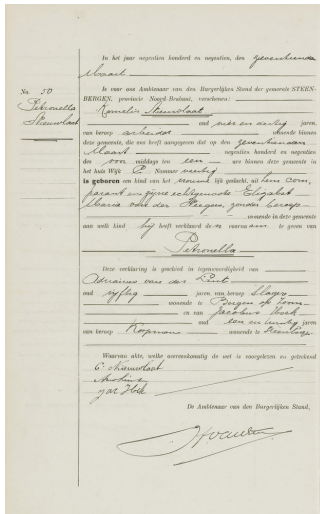 In het jaar negentien honderd en negentien, den zeventienden
Maart
is voor ons Ambtenaar van den Burgerlijken Stand der gemeente STEEN-
BERGEN, provincie Noord-Brabant, verschenen:
No. 50.
Petronella
Nieuwlaat
Kornelis Nieuwlaat
oud vier en dertig jaren,
van beroep arbeider wonende binnen
deze gemeente, die ons heeft aangegeven dat op den zeventienden
Maart negentien honderd en negentien
des voor middags ten een ure binnen deze gemeente in
het huis Wijk Nummer veertig
is geboren een kind van het vrouwelijk geslacht, uit hem com-
parant en zijne echtgenoote Elizabet
Maria van der zonder beroep
wonende in deze gemeente
aan welk kind hij heeft verklaard de voornaam te geven van
Petronella
Deze verklaring is geschied in tegenwoordigheid van
Adrianus van der
oud vijftig jaren van beroep Slager
wonende te Bergen op Zoom
en van Jacobus Hock
oud een en jaren
van beroep Koopman wonende te
Waarvan akte, welke overeenkomstig de wet is voorgelezen en geteekend
C. Nieuwlaat
Hock
De Ambtenaar van den Burgerlijken Stand,